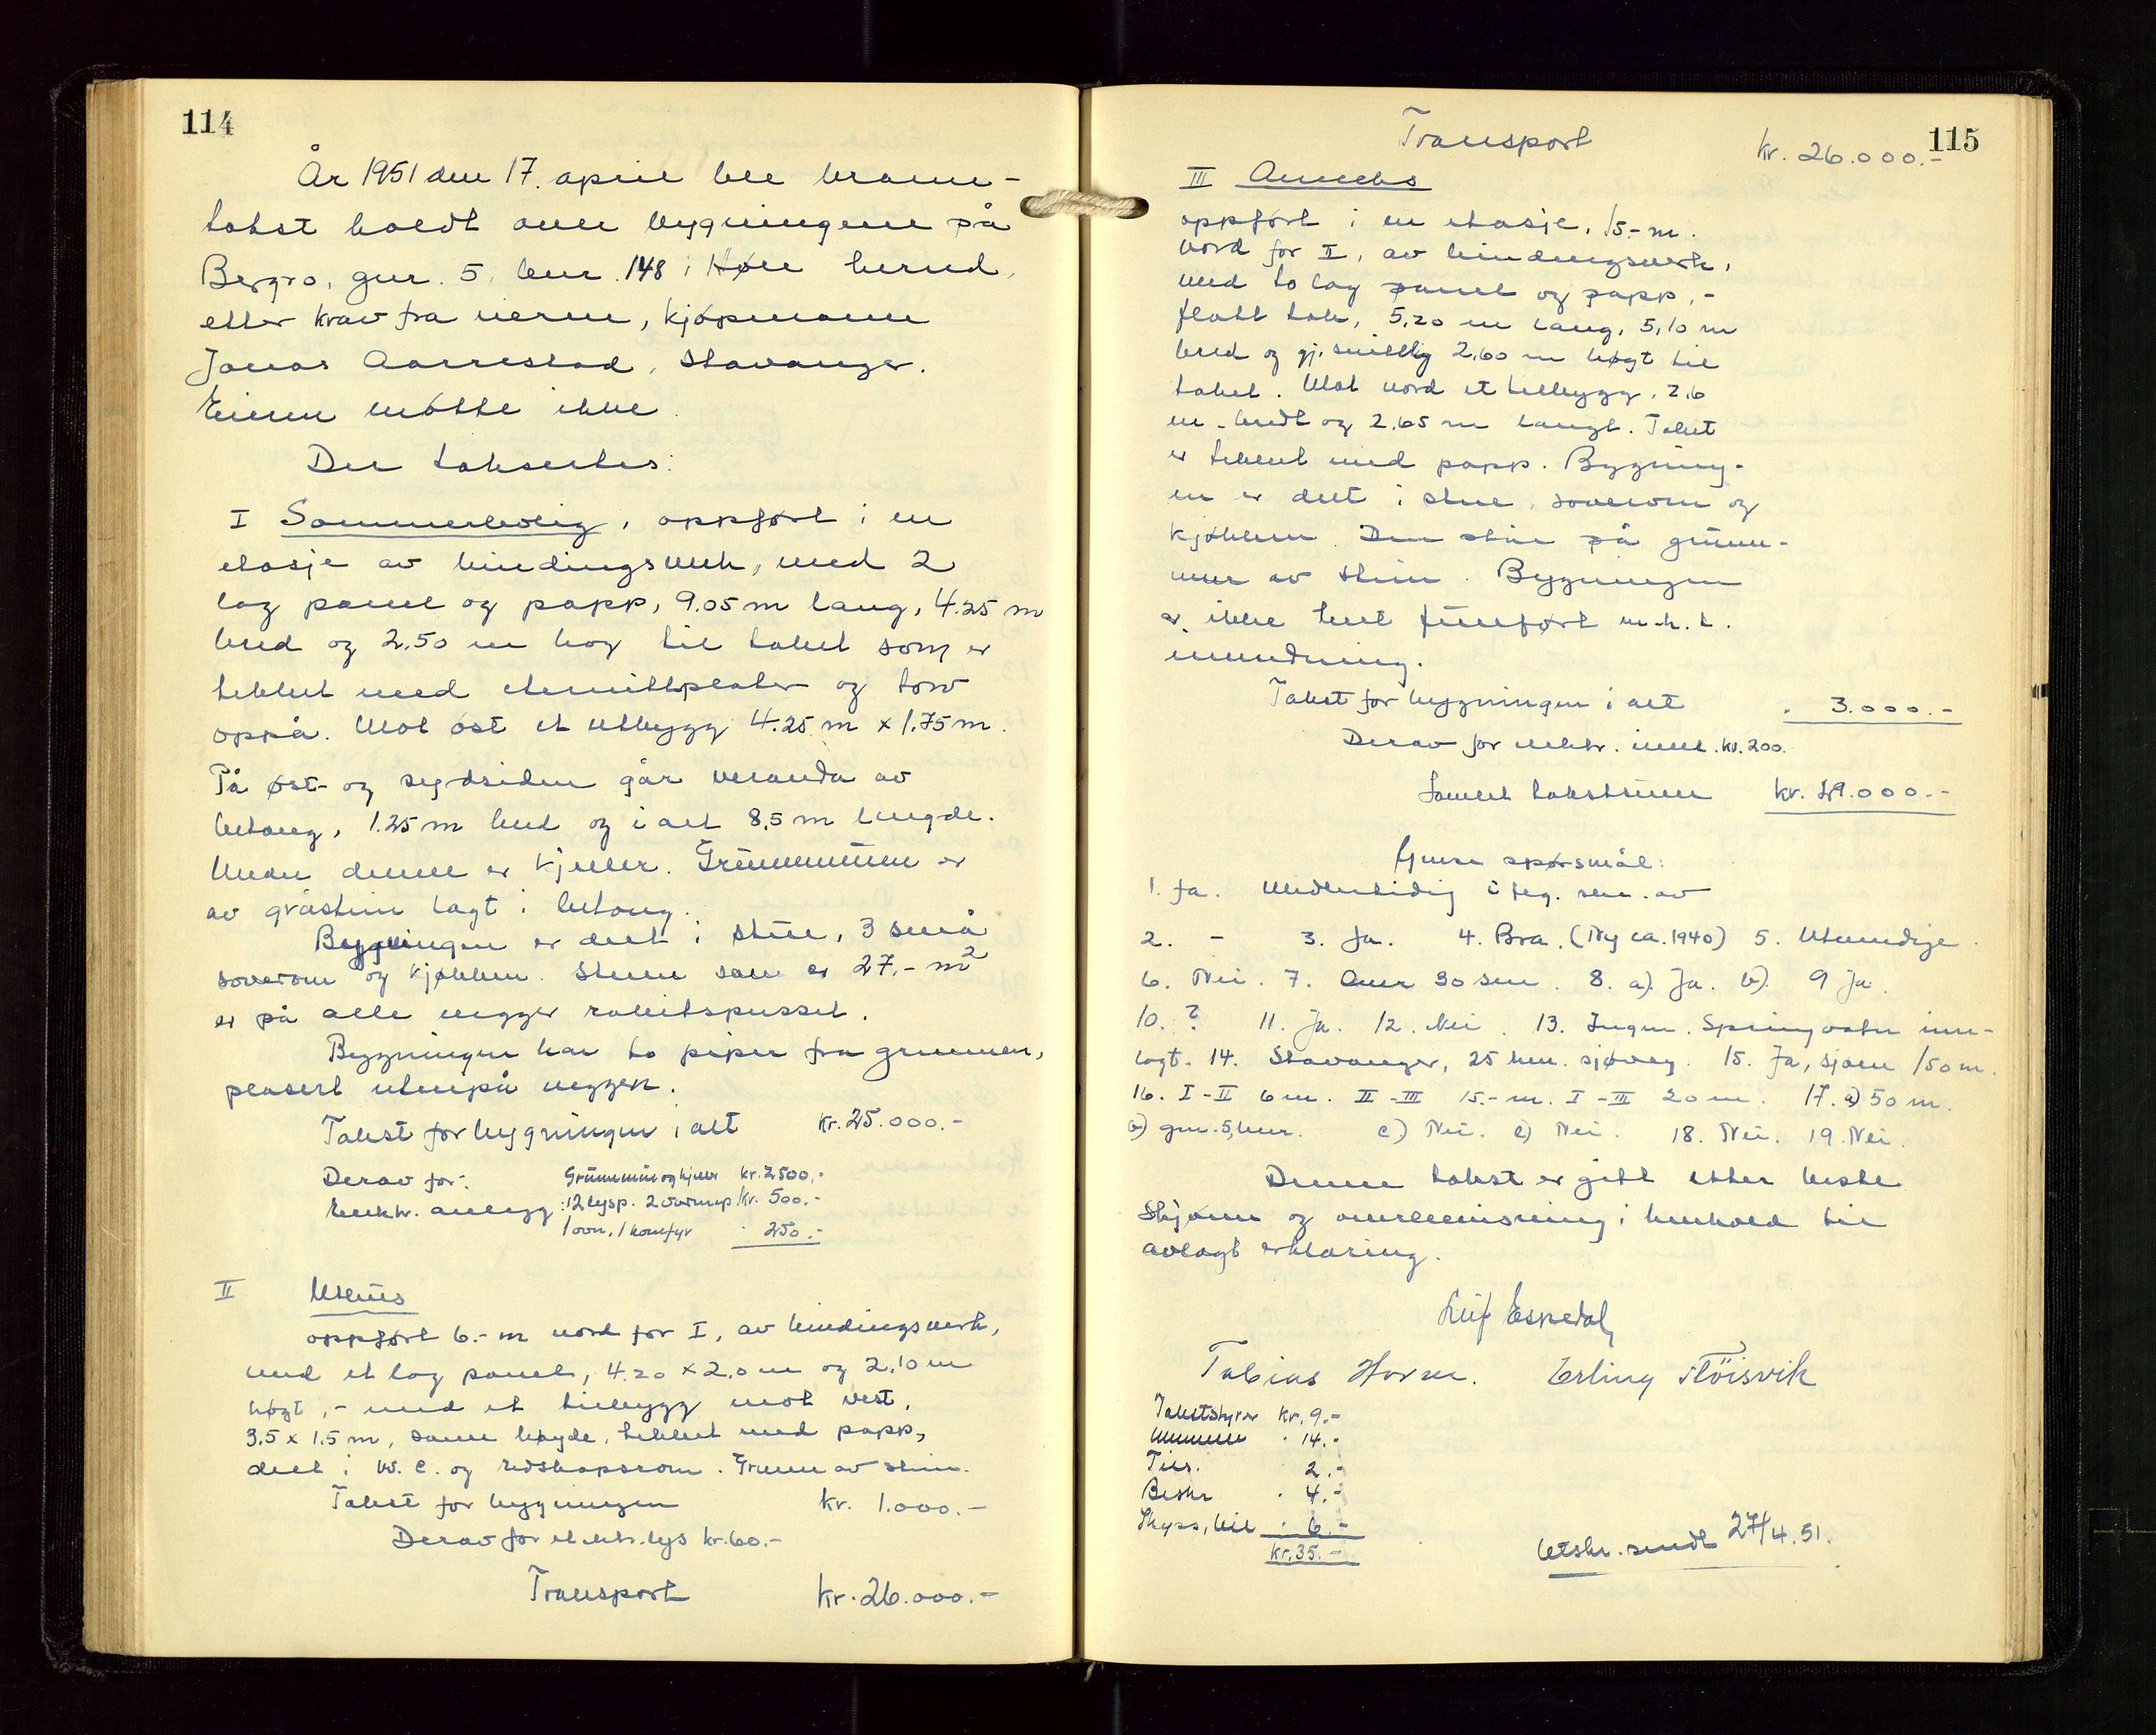 114
År 1951 den 17. april ble brann-
takst holdt over bygningene på
Bergro, gnr. 5, bnr. 148 i Høle herred,
etter krav fra eieren, kjøpmann
Jonas Aarrestad, Stavanger.
Eieren møtte ikke.
Der taksertes:
I Sommerbolig, oppført i en
etasje av bindingsverk, med 2
lag panel og papp, 9.05 m lang, 4.25 m
bred og 2.50 m høg til taket som er
tekket med eternittplater og torv
oppå. Mot øst et utbygg 4.25 m x 1.75 m.
På øst- og sydsiden går veranda av
betong, 1.25 m bred og i alt 8,5 m lengde.
Under denne er kjeller. Grunnmuren er
av gråstein lagt i betong.
Bygningen er delt i stue, 3 små
soverom og kjøkken. Stuen som er 27.- m²
er på alle vegger rabitspusset.
Bygningen har to piper fra grunnen,
plasert utenpå veggen.
Takst for bygningen i alt kr. 25.000.-
Derav for: Grunnmur og kjeller kr. 2500.-
Elektr. anlegg: 12 lysp. 2 varmep. kr. 500.-
1 ovn, 1 komfyr " 250.-
II Uthus
oppført 6.- m nord for I, av bindingsverk,
med et lag panel, 4.20 x 2.0 m og 2.10 m
høgt, - med et tilbygg mot vest,
3.5 x 1.5 m, samme høyde, tekket med papp,
delt i W.C. og redskapsrom. Grunn av stein.
Takst for bygningen kr. 1.000.-
Derav for elektr. lys kr. 60.-
Transport kr. 26.000.-
115
Transport kr. 26.000.-
III Anneks
oppført i en etasje, 15.- m.
nord for II, av bindingsverk,
med to lag panel og papp, -
flatt tak, 5,20 m lang, 5,10 m
bred og gj.snittlig 2,60 m høgt til
taket. Mot nord et tilbygg, 2,6
m bredt og 2,65 m langt. Taket
er tekket med papp. Bygning-
en er delt i stue, soverom og
kjøkken. Den står på grunn-
mur av stein. Bygningen
er ikke helt fullført m.h.t.
innredning.
Takst for bygningen i alt " 3.000.-
Derav for elektr. innl. kr. 200.
Samlet takstsum kr. 29.000.-
Gjense spørsmål:
1. Ja. Midlertidig i
2. - 3. Ja. 4. Bra. (Ny ca. 1940) 5. Utvendige.
6. Nei. 7. Over 30 sm. 8. a). Ja. b). 9 Ja.
10. ? 11. Ja. 12. Nei. 13. Ingen. Springvatn inn-
lagt. 14. Stavanger, 25 km. sjøveg. 15. Ja, sjøen 150 m.
16. I - II 6 m. II - III 15.- m. I - III 20 m. 17. a) 50 m.
b) gnr. 5, bnr. c) Nei. e) Nei. 18. Nei. 19. Nei.
Denne takst er gitt etter beste
skjønn og overbevisning i henhold til
avlagt erklæring.
Leif Espedal
Tobias Horve. Erling Høisvik
Takstskyver kr. 9.-
" 14.-
Tils. 2.-
Beskr " 4.-
Skyss, bil " 6.-
kr. 35.-
Utskr. sendt 27/4.51.